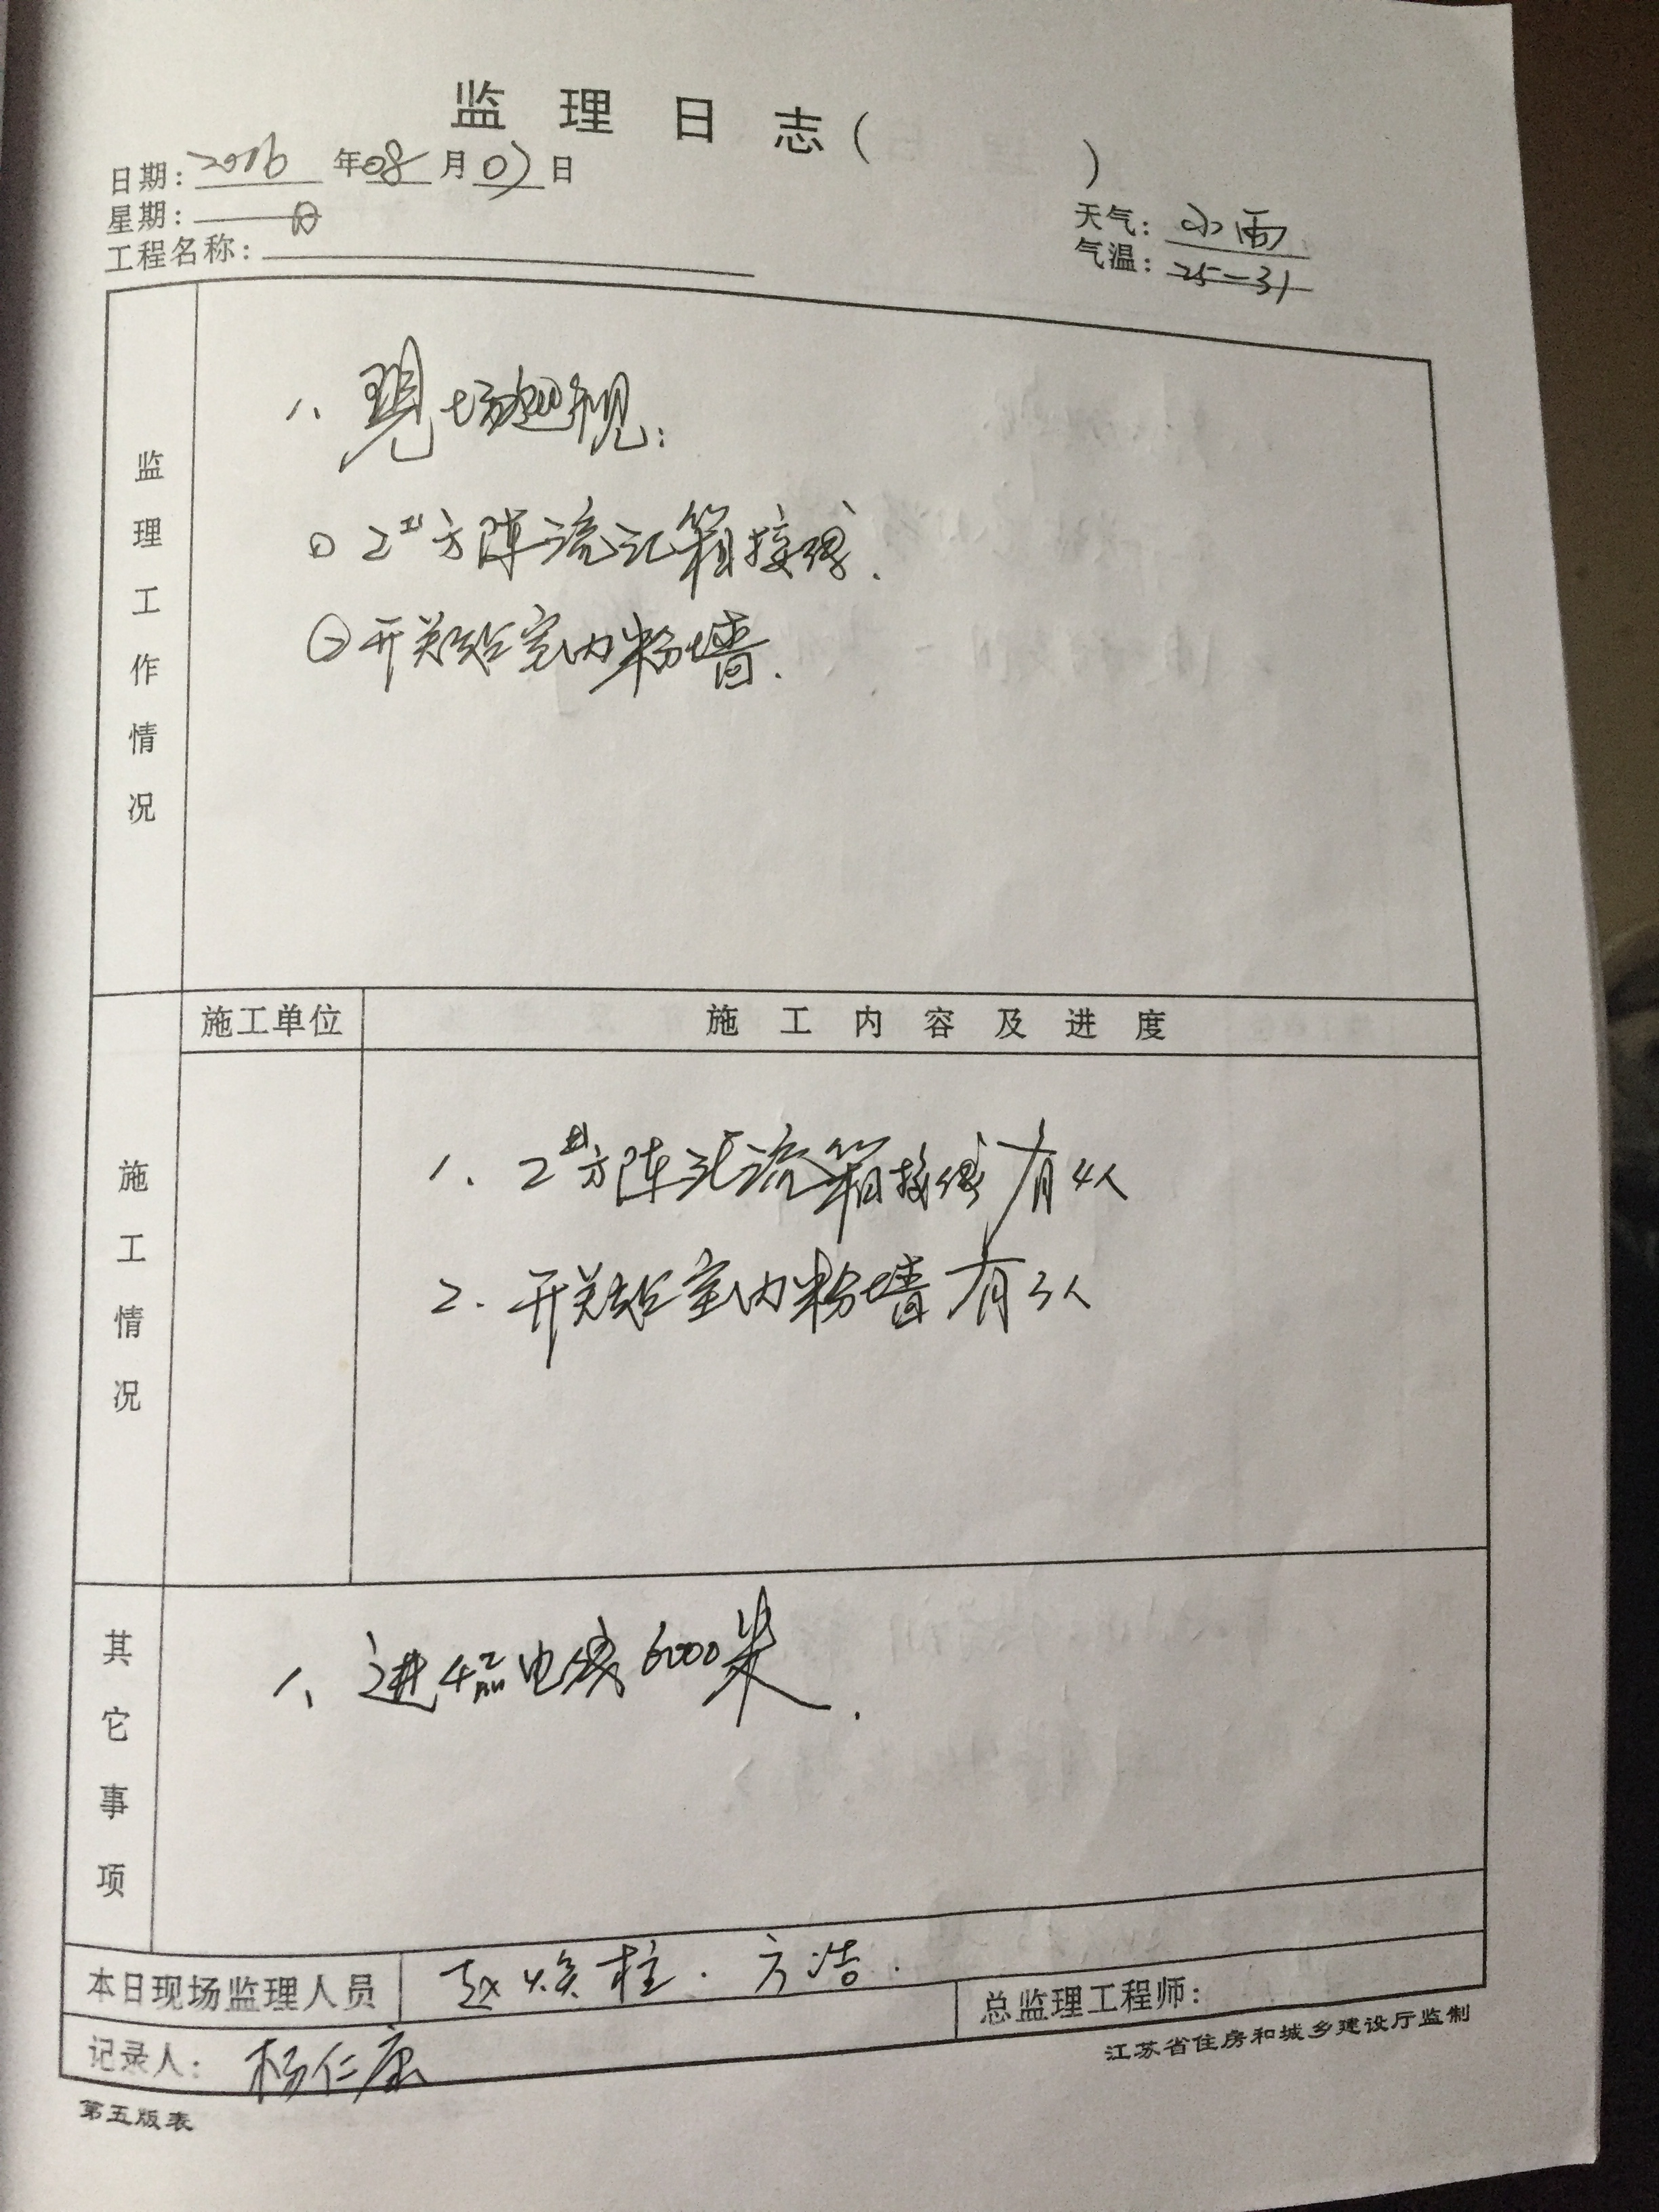 监理日志（ ）
日期：2016年08月07日
星期：日
天气：小雨
工程名称：
气温：25—31
监理工作情况
1、现场巡视：
① 2#方阵流汇箱接线.
② 开关站室内粉墙.
施工情况
施工单位 施工内容及进度
1、2#方阵汇流箱接线有4人
2. 开关站室内粉墙有3人
其它事项
1、进4 电缆6000米.
本日现场监理人员 赵焕柱. 方浩.
总监理工程师：
记录人：杨仁康
江苏省住房和城乡建设厅监制
第五版表